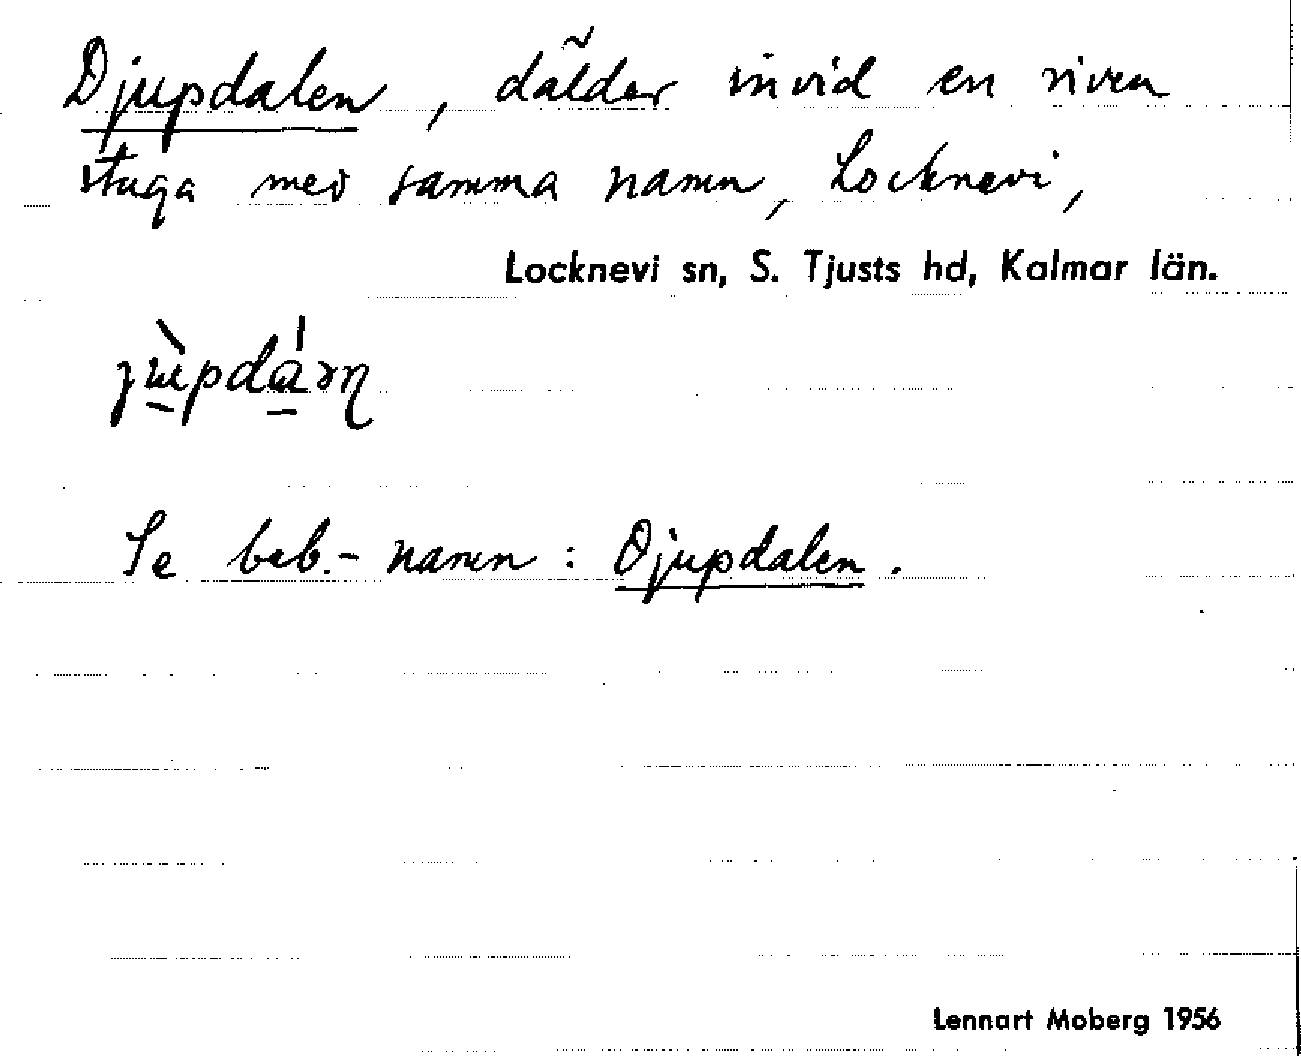 Djupdalen, dälder invid en riven
stuga med samma namn, Locknevi,
Locknevi sn, S. Tjusts hd, Kalmar län.
Se beb.-namn: Djupdalen.
Lennart Moberg 1956